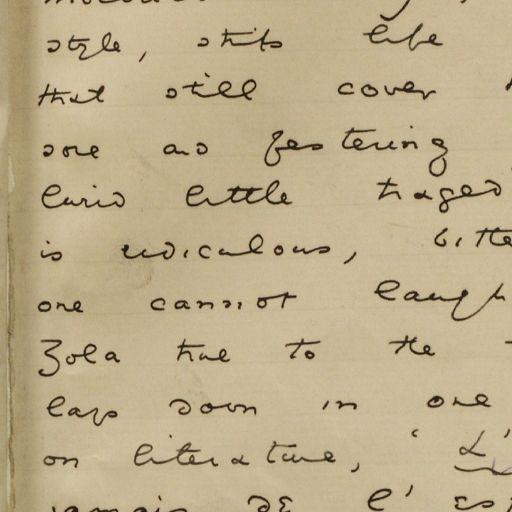 style, strips life
that still cover
sore and festering
lurid little traged
is ridiculous, bitte
one cannot laugh
Zola true to the
lays down in one
on literature, 'L'
jamais de l'es